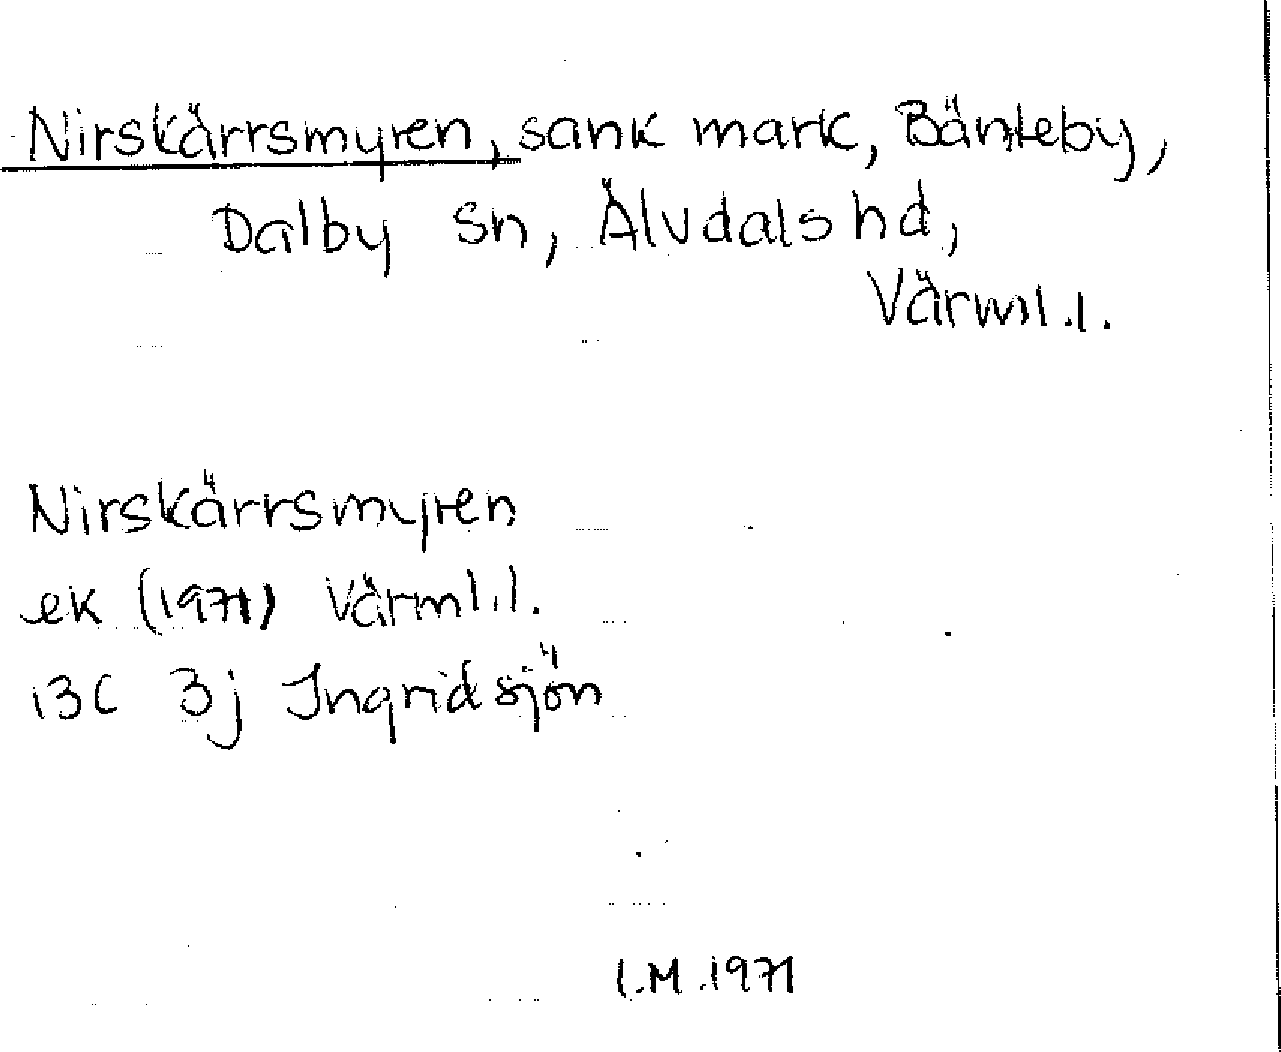 Nirskärrsmyren, sank mark, Bänteby,
Dalby sn, Älvdals hd,
Värml.l.
Nirskärrsmyren
ek (1971) Värml.l.
13C 3j Ingridsjön
I.M.1971